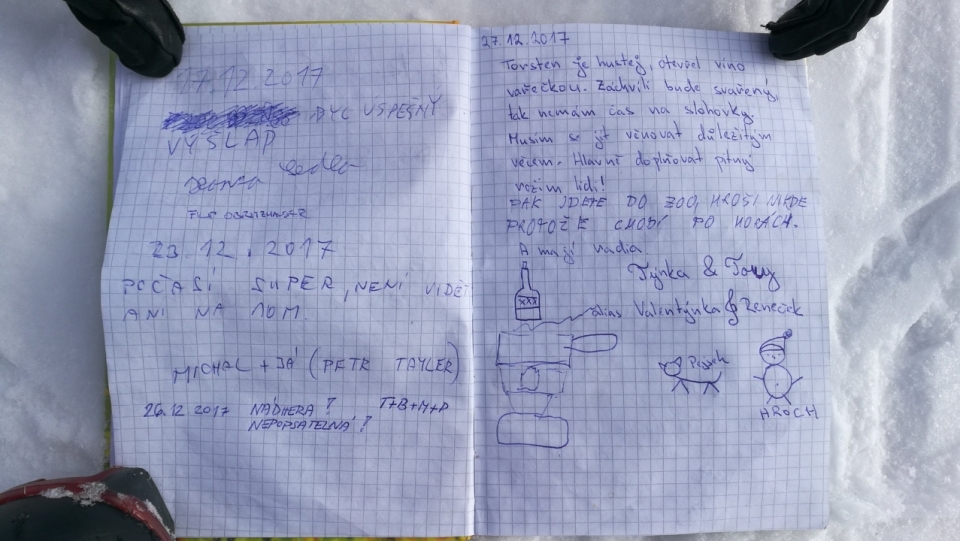 17.12.2017
BYL ÚSPĚŠNÝ
VÝŠLAP
23.12.2017
POČASÍ SUPER, NENÍ VIDĚT
ANI NA 10M.
MICHAL + JÁ (PETR TAYLER)
26.12 2017 NÁDHERA! T+B+M+P
NEPOPSATELNÁ!
27.12.2017
Torsten je hustej, otevřel víno
vařečkou. Zachvíli bude svařený,
tak nemám čas na slohovky.
Musím se jít věnovat důležitým
věcem. Hlavně doplňovat pitný
režim lidí!
PAK JDETE DO ZOO, HROŠI NIKDE
PROTOŽE CHODÍ PO HORÁCH.
A mají
Týnka & Tony
XXX
alias Valentýnka & Zeneček
Pejsek
HROCH